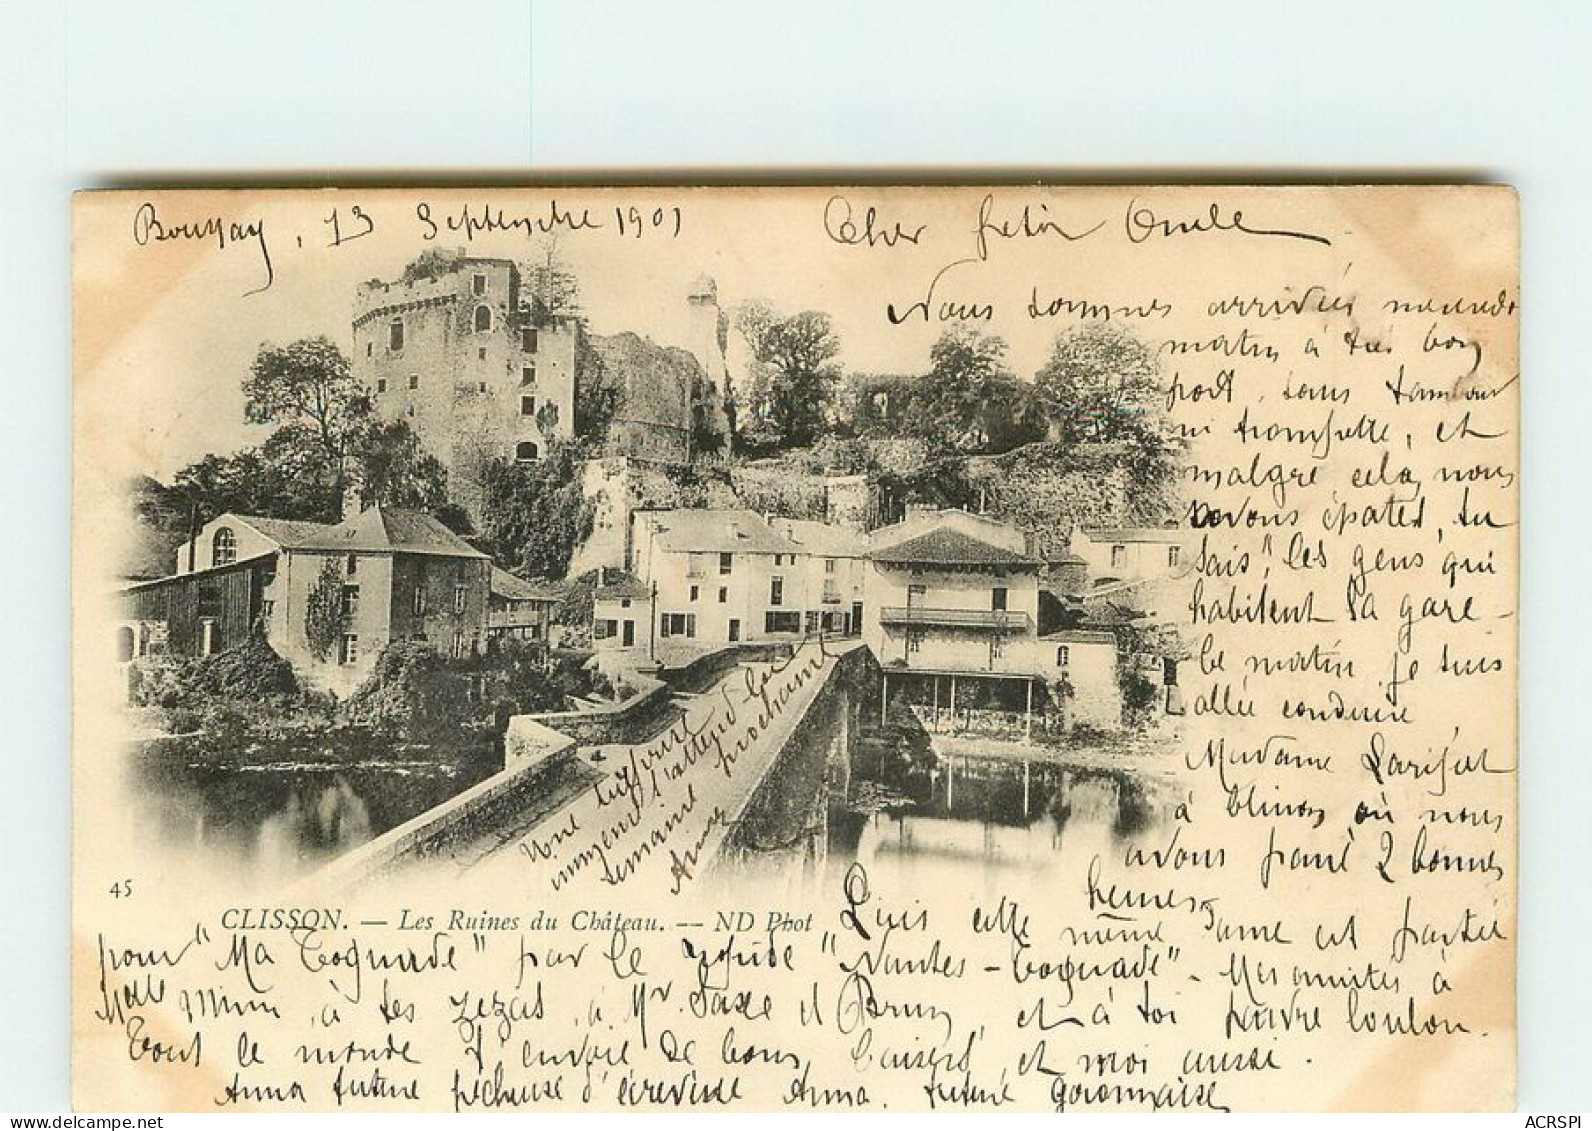 13 Septembre 1901
Cher petit Oncle
Nous sommes arrivées
matin à bon
port, sans tambour
ni trompette, et
malgré cela, nous
avons épaté, tu
sais, "les gens qui
habitent la gare -
Ce matin je suis
allée conduire
Madame
à où nous
avons passé 2 bonnes
heures
Puis cette même dame est partie
pour "Ma Toquade" par le "Nantes - Toquade" - Mes amitiés à
Melle Mimi, à tes , à Mr. et , et à toi pauvre loulou.
Tout le monde t'envoie de bons baisers, et moi aussi.
Anna future pêcheuse d'écrevisse Anna. future
Une
t'attend la
semaine prochaine
Anna
45
CLISSON. — Les Ruines du Château. — ND Phot
ACRSPI